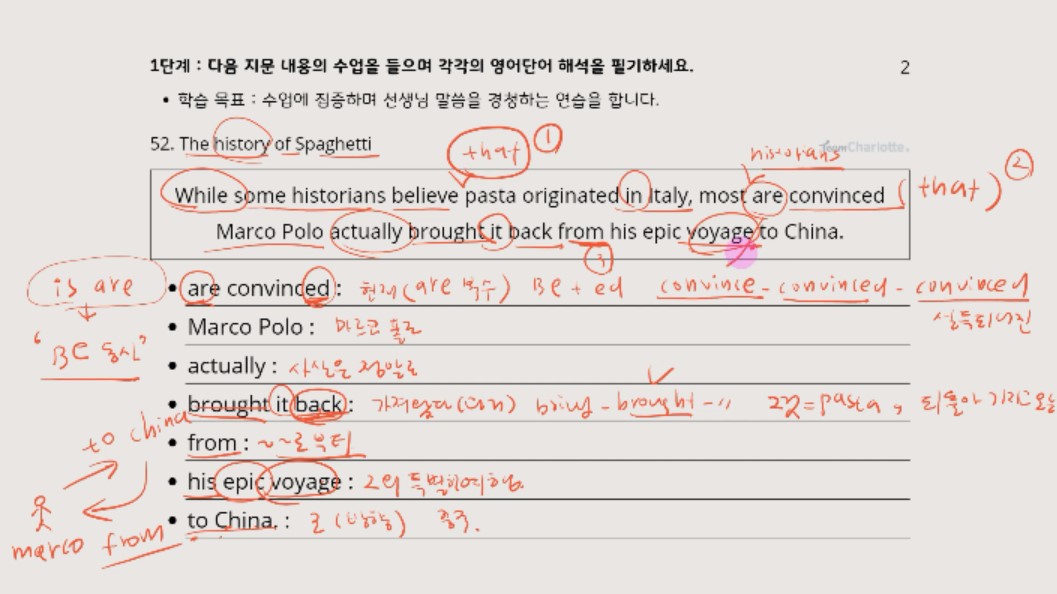 1단계 : 다음 지문 내용의 수업을 들으며 각각의 영어단어 해석을 필기하세요.
2
• 학습 목표 : 수업에 집중하며 선생님 말씀을 경청하는 연습을 합니다.
52. The history of Spaghetti
that ①
historians
TeamCharlotte.
While some historians believe pasta originated in Italy, most are convinced (that) ②
Marco Polo actually brought it back from his epic voyage to China.
③
is are
• are convinced : 현재(are 복수) Be + ed convince - convinced - convinced
설득되어진
• Marco Polo : 마르코 폴로
"Be 동사"
• actually : 사실은 정말로
• brought it back : 가져왔다(과거) bring - brought - " 그것=pasta, 되돌아 가지고 오는
to China
• from : ~~로부터
• his epic voyage : 그의 특별한여행.
• to China. : 로 (방향) 중국.
marco from